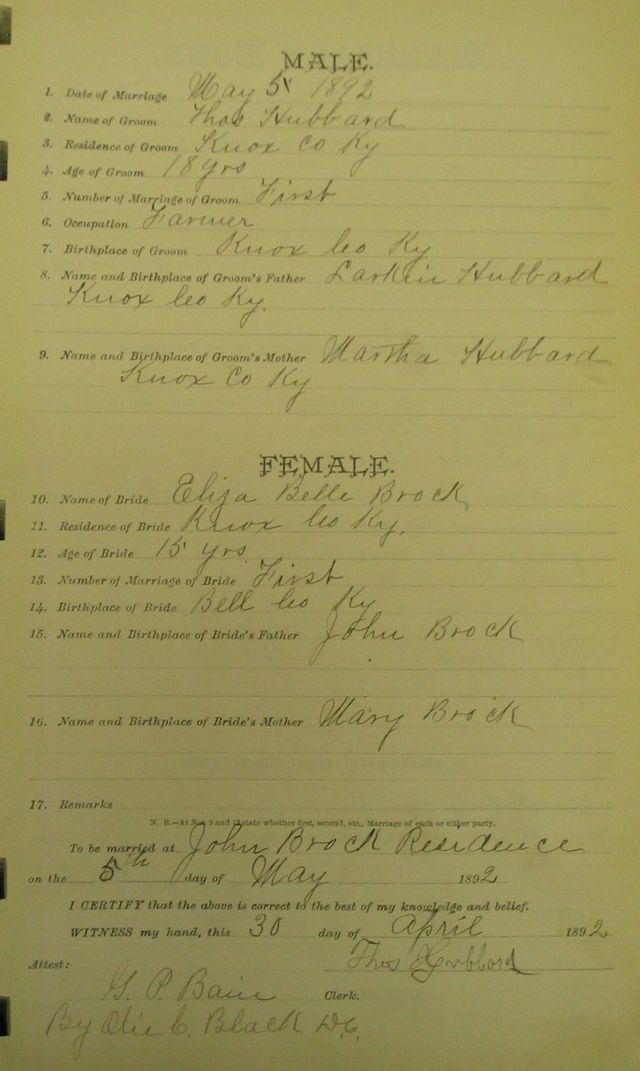 MALE.
1. Date of Marriage May 5 1892
2. Name of Groom Thos Hubbard
3. Residence of Groom Knox Co Ky
4. Age of Groom 18 yrs
5. Number of Marriage of Groom First
6. Occupation Farmer
7. Birthplace of Groom Knox Co Ky
8. Name and Birthplace of Groom's Father Larkin Hubbard
Knox Co Ky.
9. Name and Birthplace of Groom's Mother Martha Hubbard
Knox Co Ky
FEMALE.
10. Name of Bride Eliza Belle Brock
11. Residence of Bride Knox Co Ky.
12. Age of Bride 15 yrs
13. Number of Marriage of Bride First
14. Birthplace of Bride Bell Co Ky
15. Name and Birthplace of Bride's Father John Brock
16. Name and Birthplace of Bride's Mother Mary Brock
17. Remarks
N. B.—At Nos. 5 and 13 state whether first, second, etc., Marriage of each or either party.
To be married at John Brock Residence
on the 5th day of May 1892
I CERTIFY that the above is correct to the best of my knowledge and belief.
WITNESS my hand, this 30 day of April 1892
Attest: Thos Hubbard
G. P. Bain Clerk.
By C. Black D.C.